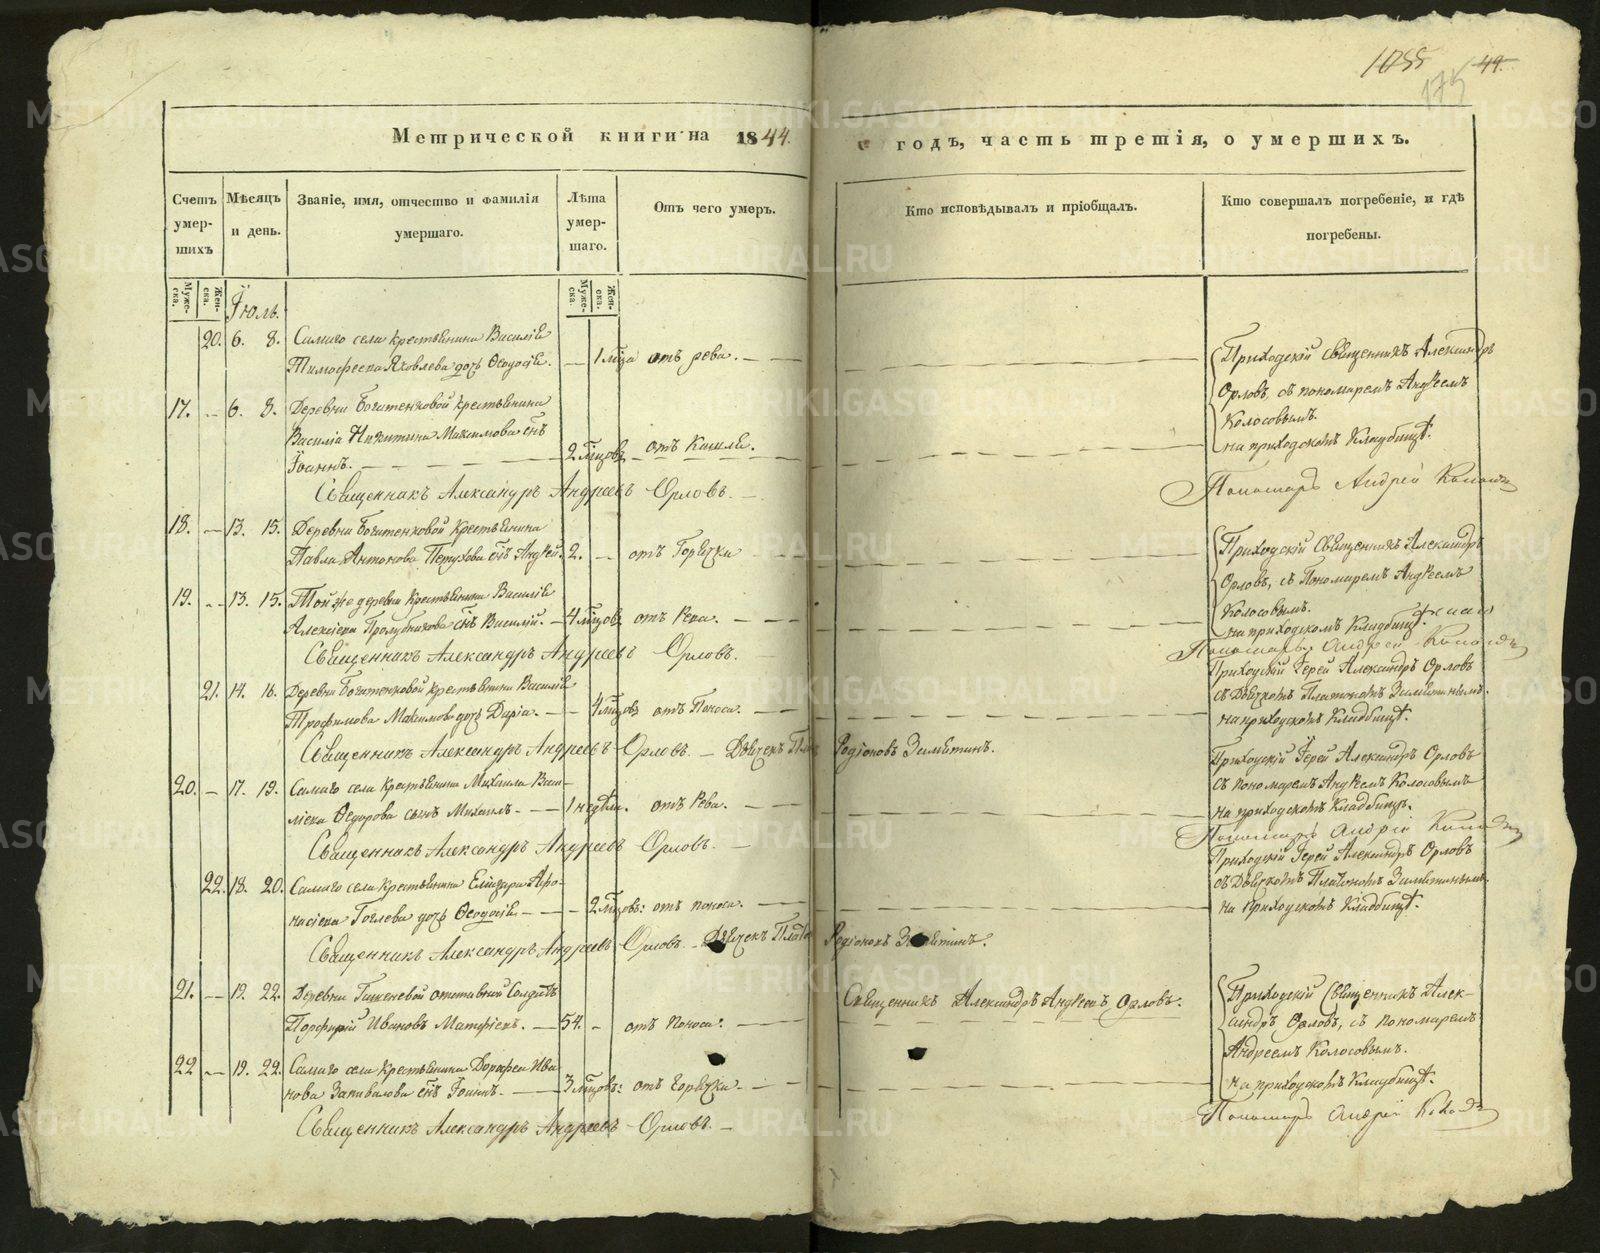 1055 44.
175
Метрической книги на 1844.
годъ, часть третія, о умершихъ.
Счетъ умер-шихъ
Мѣсяцъ и день.
Званіе, имя, отчество и фамилія умершаго.
Лѣта умер-шаго.
Отъ чего умеръ.
Кто исповѣдывалъ и пріобщалъ.
Кто совершалъ погребеніе, и гдѣ погребены.
Муже-ска. Жен-ска.
Муже-ска. Жен-ска.
Іюль.
20. 6. 8. Самаго села крестьянина Василія
Тимофеева Яковлева дочь Ѳеодосія. — 1 мѣца отъ рева. — —
Приходскій Священникъ Александръ
Орловъ, съ пономаремъ Андреемъ
Колосовымъ.
на приходскомъ Кладбищѣ.
17. — 6. 8. Деревни Богатенковой крестьянина
Василія Никитина Максимова снъ
Іоаннъ. — 2 мѣцовъ — отъ Кашля.
Священникъ Александръ Андреевъ Орловъ. —
Пономарь Андрей
18. — 13. 15. Деревни Богатенковой Крестьянина
Павла Антонова Петухова снъ Андрей. 2. — отъ Горячки
Приходскій Священникъ Александръ
Орловъ, съ Пономаремъ Андреемъ
Колосовымъ.
на приходскомъ Кладбищѣ.
19. — 13. 15. Той же деревни Крестьянина Василія
Алексіева Голубчикова снъ Василій. — 4 мѣцовъ отъ Рева. —
Священникъ Александръ Андреевъ Орловъ.
Пономарь Андрей
21. 14. 16. Деревни Богатенковой крестьянина Василія
Трофимова Максимова дочь Дарія. — — 4 мѣцовъ отъ Поноса. —
Приходскій Іерей Александръ Орловъ
съ Дьячкомъ Платономъ Замятинымъ.
на приходскомъ Кладбищѣ.
Священникъ Александръ Андреевъ Орловъ. — Дьячекъ Родіоновъ Замятинъ.
20. — 17. 19. Самаго села Крестьянина Михаила Васи-
ліева Ѳедорова сынъ Михаилъ. — — 1 недѣли. отъ Рева. —
Приходскій Іерей Александръ Орловъ
съ пономаремъ Андреемъ Колосовымъ
на приходскомъ Кладбищѣ.
Священникъ Александръ Андреевъ Орловъ. —
Пономарь Андрей
22. 18. 20. Самаго села Крестьянина Елизара Афо-
насіева Гоглева дочь Ѳеодосія — — 2 мѣцовъ: отъ поноса. —
Приходскій Іерей Александръ Орловъ
съ Дьячкомъ Платономъ Замятинымъ.
на приходскомъ Кладбищѣ.
Священникъ Александръ Андреевъ Орловъ. — Дьячекъ Платонъ Родіоновъ Замятинъ.
21. — 19. 22. Деревни отставный Солдатъ
Порфирій Ивановъ — 54. — отъ Поноса.
Священникъ Александръ Андреевъ Орловъ.
Приходскій Священникъ Алек-
сандръ Орловъ, съ пономаремъ
Андреемъ Колосовымъ.
на приходскомъ Кладбищѣ.
22 — 19. 22. Самаго села Крестьянина Дорофея Ива-
нова Запивалова снъ Іоаннъ. — 3 мѣцовъ: отъ Горячки.
Священникъ Александръ Андреевъ Орловъ. —
Пономарь Андрей
METRIKI.GASO-URAL.RU